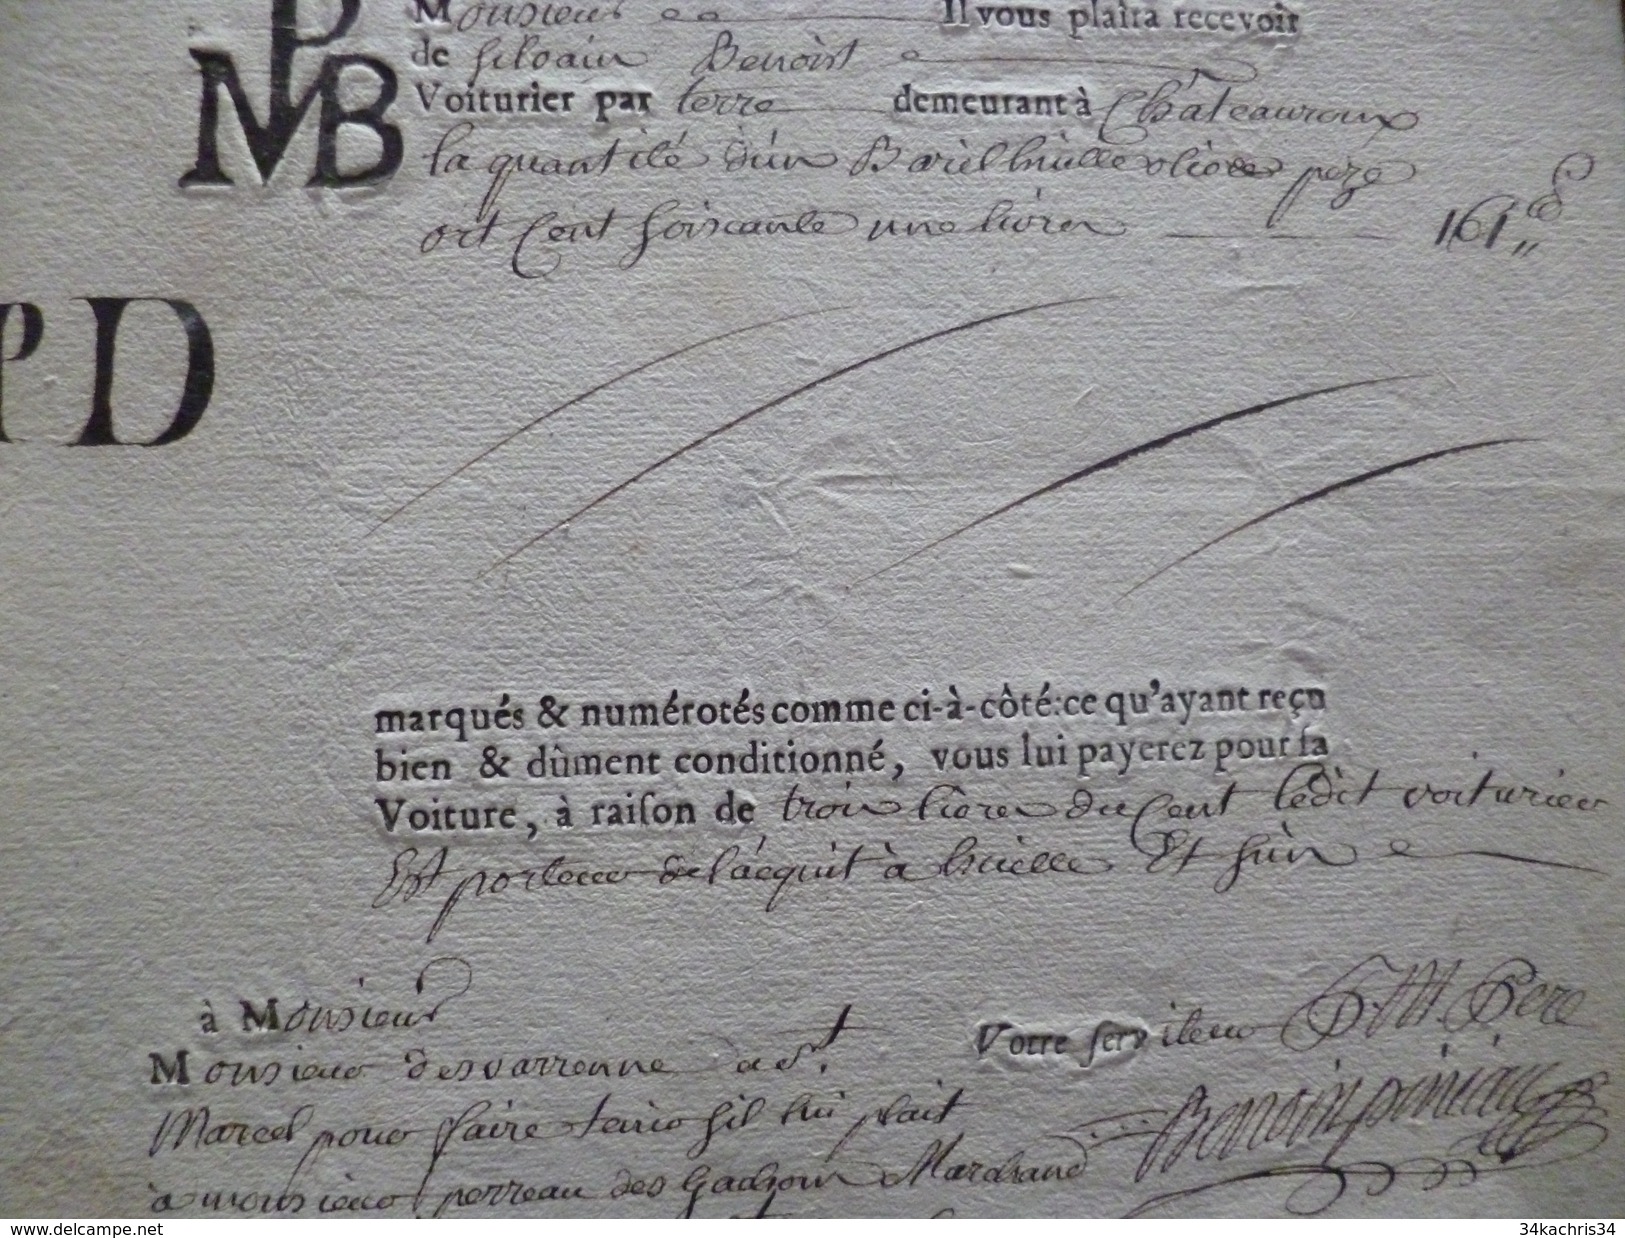 Monsieur Il vous plaira recevoir
de Silvain Benoist
Voiturier par terre demeurant à Châteauroux
MPB
la quantité d'un Bariel huille olives peze
ort Cent soixante une livres 161
PD
marqués & numérotés comme ci-à-côté: ce qu'ayant reçu
bien & dûment conditionné, vous lui payerez pour sa
Voiture, à raison de trois livres du Cent ledit voiturier
Est porteur de l'acquit à huille Et
à Monsieur
Votre serviteur Pere
Monsieur desvarrenne a St.
Marcel pour faire tenir sil lui plait
Benoin
a monsieur perreau des Marchand
www.delcampe.net 34kachris34